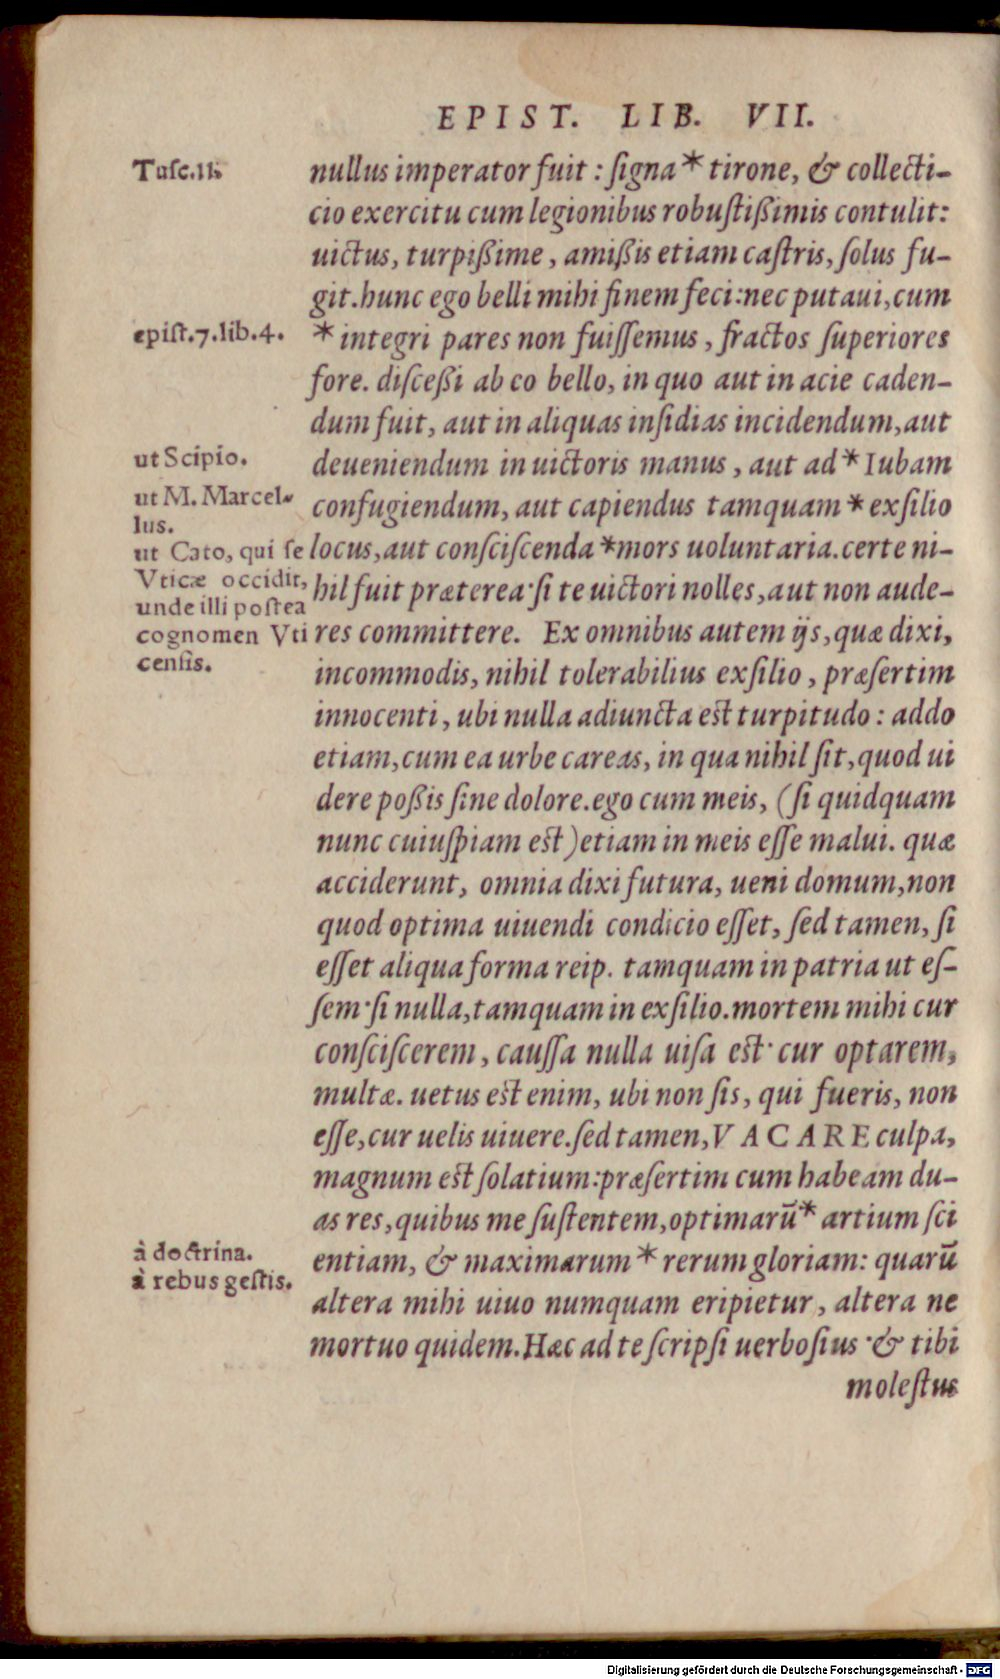 EPIST. LIB. VII.
Tusc.11.
nullus imperator fuit : ſigna * tirone, & collecti-
cio exercitu cum legionibus robuſtißimis contulit:
uictus, turpißime, amißis etiam caſtris, ſolus fu-
git. hunc ego belli mihi finem feci: nec putaui, cum
epiſt.7.lib.4.
* integri pares non fuiſſemus, fractos ſuperiores
fore. diſceßi ab eo bello, in quo aut in acie caden-
dum fuit, aut in aliquas inſidias incidendum, aut
ut Scipio.
deueniendum in uictoris manus, aut ad * Iubam
ut M. Marcel-
lus.
confugiendum, aut capiendus tamquam * exſilio
ut Cato, qui ſe
Vticæ occidit,
unde illi poſtea
cognomen Vti
cenſis.
locus, aut conſciſcenda * mors uoluntaria. certe ni-
hil fuit præterea· ſi te uictori nolles, aut non aude-
res committere. Ex omnibus autem ijs, quæ dixi,
incommodis, nihil tolerabilius exſilio, præſertim
innocenti, ubi nulla adiuncta eſt turpitudo : addo
etiam, cum ea urbe careas, in qua nihil ſit, quod ui
dere poßis ſine dolore. ego cum meis, (ſi quidquam
nunc cuiuſpiam eſt) etiam in meis eſſe malui. quæ
acciderunt, omnia dixi futura, ueni domum, non
quod optima uiuendi condicio eſſet, ſed tamen, ſi
eſſet aliqua forma reip. tamquam in patria ut eſ-
ſem· ſi nulla, tamquam in exſilio. mortem mihi cur
conſciſcerem, cauſſa nulla uiſa eſt· cur optarem,
multæ. uetus eſt enim, ubi non ſis, qui fueris, non
eſſe, cur uelis uiuere. ſed tamen, VACARE culpa,
magnum eſt ſolatium: præſertim cum habeam du-
as res, quibus me ſuſtentem, optimarū * artium ſci
à doctrina.
entiam, & maximarum * rerum gloriam: quarū
à rebus geſtis.
altera mihi uiuo numquam eripietur, altera ne
mortuo quidem. Hæc ad te ſcripſi uerboſius · & tibi
moleſtus
Digitalisierung gefördert durch die Deutsche Forschungsgemeinschaft - DFG